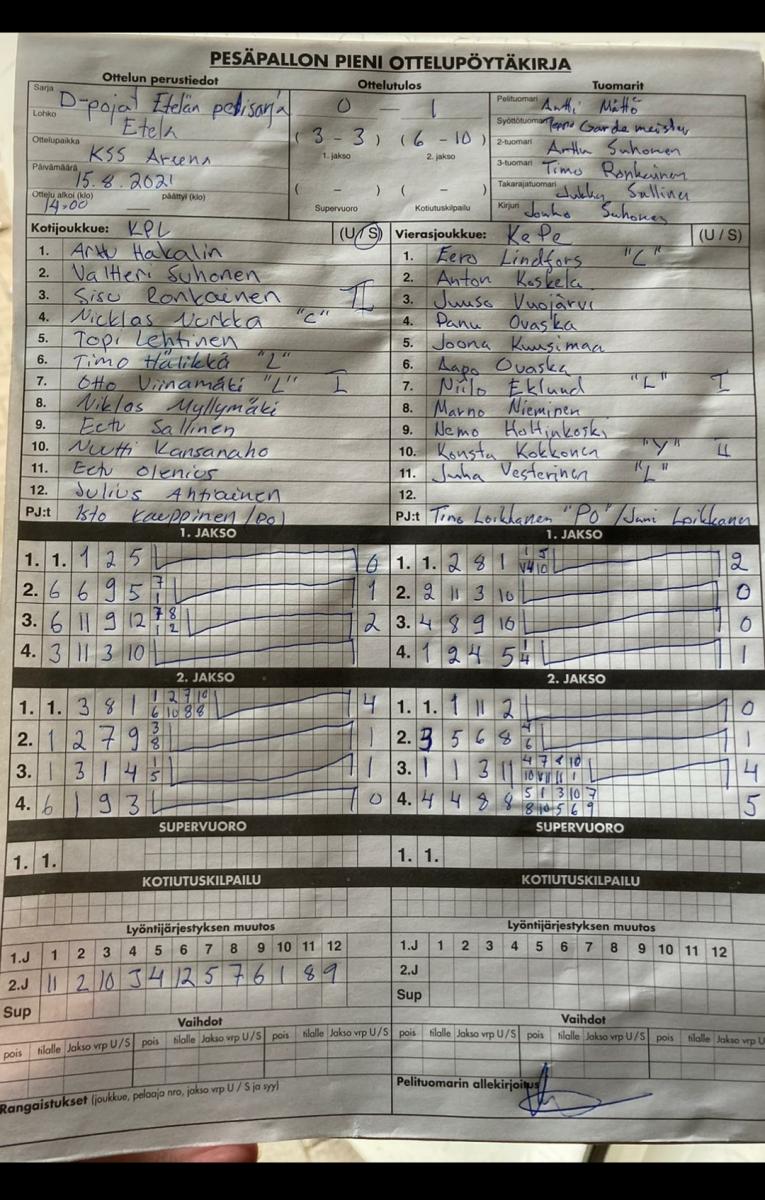 PESÄPALLON PIENI OTTELUPÖYTÄKIRJA
Ottelun perustiedot Ottelutulos Tuomarit
Sarja D-pojat Etelän pelisarja
Lohko Etelä
Ottelupaikka KSS Areena
Päivämäärä 15.8.2021
Ottelu alkoi (klo) päättyi (klo)
14.00
0 - 1
(3 - 3) (6 - 10)
1. jakso 2. jakso
( - ) ( - )
Supervuoro Kotiutuskilpailu
Pelituomari Antti Mättö
Syöttötuomari Gardemeister
2-tuomari Arttu Suhonen
3-tuomari Timo Ronkainen
Takarajatuomari Jukka Sallinen
Kirjuri Jouko Suhonen
Kotijoukkue: KPL (U / S)
1. Arttu Hakalin
2. Valtteri Suhonen
3. Sisu Ronkainen II
4. Nicklas Nurkka "C"
5. Topi Lehtinen
6. Timo Hälikkä "L"
7. Otto Viinamäki "L" I
8. Niklas Myllymäki
9. Eetu Sallinen
10. Nuutti Kansanaho
11. Eetu Olenius
12. Julius Ahtiainen
PJ:t Isto Kauppinen (PO)
Vierasjoukkue: KePe (U / S)
1. Eero Lindfors "C"
2. Anton Koskela
3. Juuso Vuojärvi
4. Panu Ovaska
5. Joona Kuusimaa
6. Aapo Ovaska
7. Niilo Eklund "L" I
8. Marno Nieminen
9. Nemo Holtinkoski
10. Konsta Kokkonen "Y" II
11. Juha Vesterinen "L"
12.
PJ:t Timo Loikkanen "PO" / Jani Loikkanen
1. JAKSO 1. JAKSO
1. 1. 1 2 5 0
2. 6 6 9 5 7 1 1
3. 6 11 9 12 7 8 1 2 2
4. 3 11 3 10
1. 1. 2 8 1 2
2. 2 11 3 10 0
3. 4 8 9 10 0
4. 1 2 4 5 1 4 1
2. JAKSO 2. JAKSO
1. 1. 3 8 1 1 2 7 10 6 10 8 8 4
2. 1 2 7 9 3 8 1
3. 1 3 1 4 1 5 1
4. 6 1 9 3 0
1. 1. 1 11 2 0
2. 3 5 6 8 4 6 1
3. 1 1 3 11 4 7 8 10 4
4. 4 4 8 8 5 1 3 10 7 8 10 5 6 9 5
SUPERVUORO SUPERVUORO
1. 1. 1. 1.
KOTIUTUSKILPAILU KOTIUTUSKILPAILU
Lyöntijärjestyksen muutos Lyöntijärjestyksen muutos
1.J 1 2 3 4 5 6 7 8 9 10 11 12 1.J 1 2 3 4 5 6 7 8 9 10 11 12
2.J 11 2 10 3 4 12 5 7 6 1 8 9 2.J
Sup Sup
Vaihdot Vaihdot
pois tilalle Jakso vrp U / S pois tilalle Jakso vrp U / S pois tilalle Jakso vrp U / S pois tilalle Jakso vrp U / S pois tilalle Jakso vrp U / S pois tilalle Jakso vrp U
Rangaistukset (joukkue, pelaaja nro, jakso vrp U / S ja syy)
Pelituomarin allekirjoitus